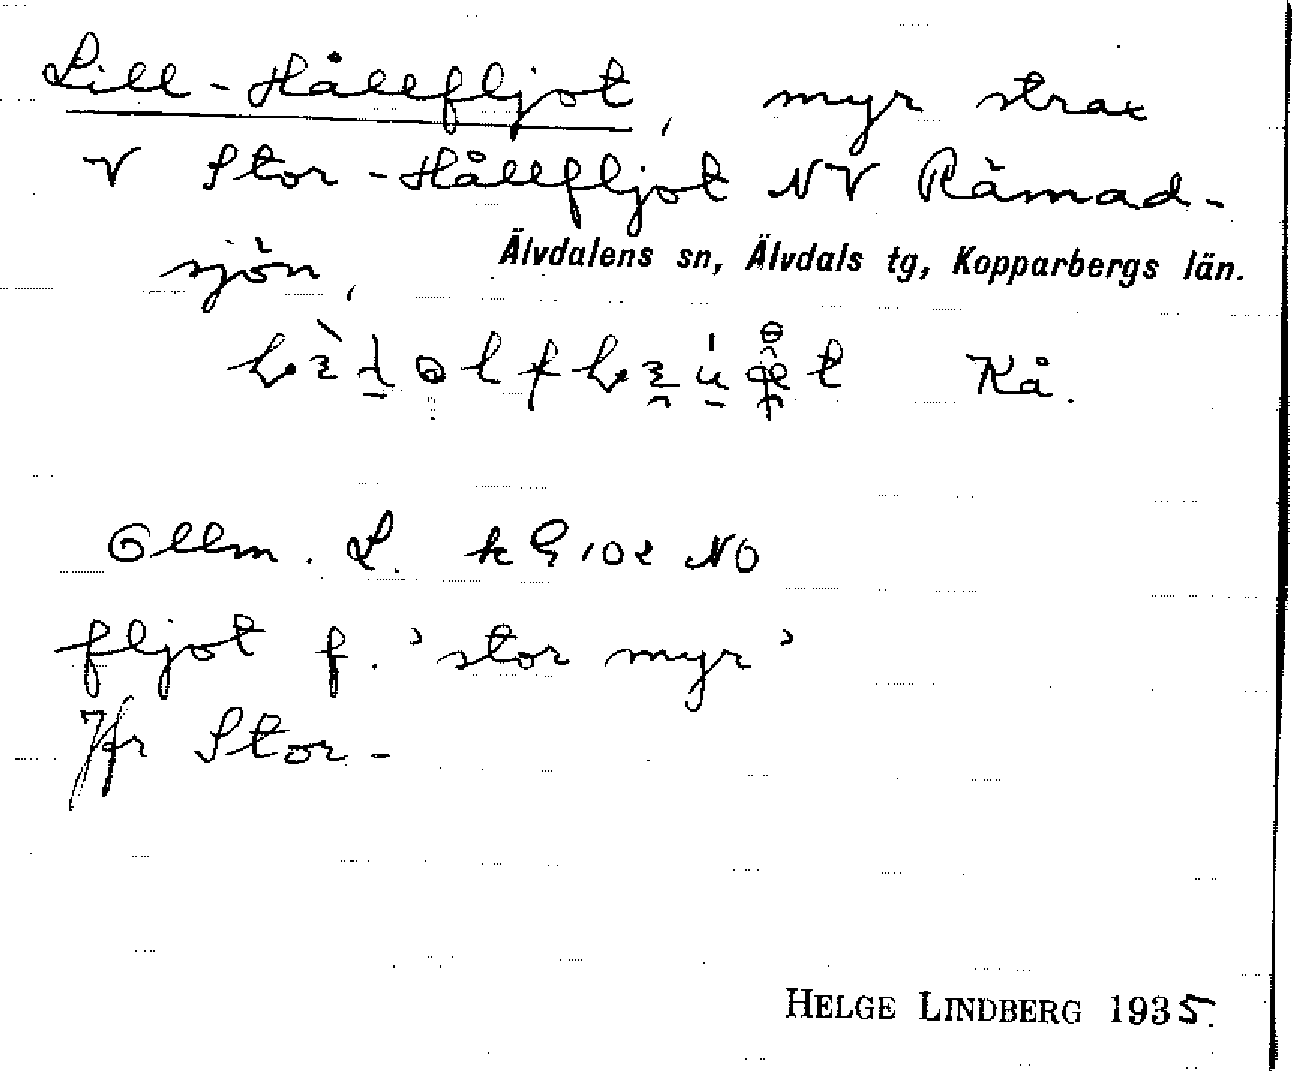 Lill-Hållfljot, myr strax
V Stor-Hållfljot NV Råmad-
sjön,
Älvdalens sn, Älvdals tg, Kopparbergs län.
Kå.
Ollm. L. k G 102 NO
fljot f. 'stor myr'
Jfr Stor-
HELGE LINDBERG 1935.